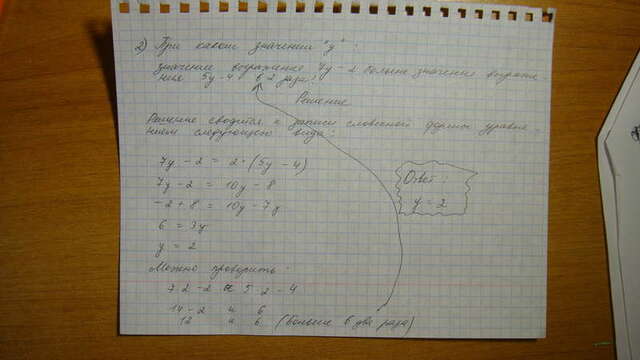 2) При каком значении "y" :
значение выражения 7y - 2 больше значения выраже-
ния 5y - 4 в 2 раза?
Решение
Решение сводится к записи словесной формы уравне-
нием следующего вида:
7y - 2 = 2·(5y - 4)
7y - 2 = 10y - 8
-2 + 8 = 10y - 7y
6 = 3y
y = 2
Ответ:
y = 2
Можно проверить:
7·2 - 2 и 5·2 - 4
14 - 2 и 6
12 и 6 (больше в два раза)